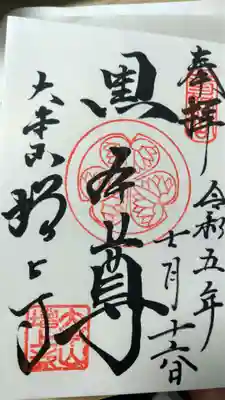 奉拝
令和五年
十月十六日
黒本尊
大本山増上寺